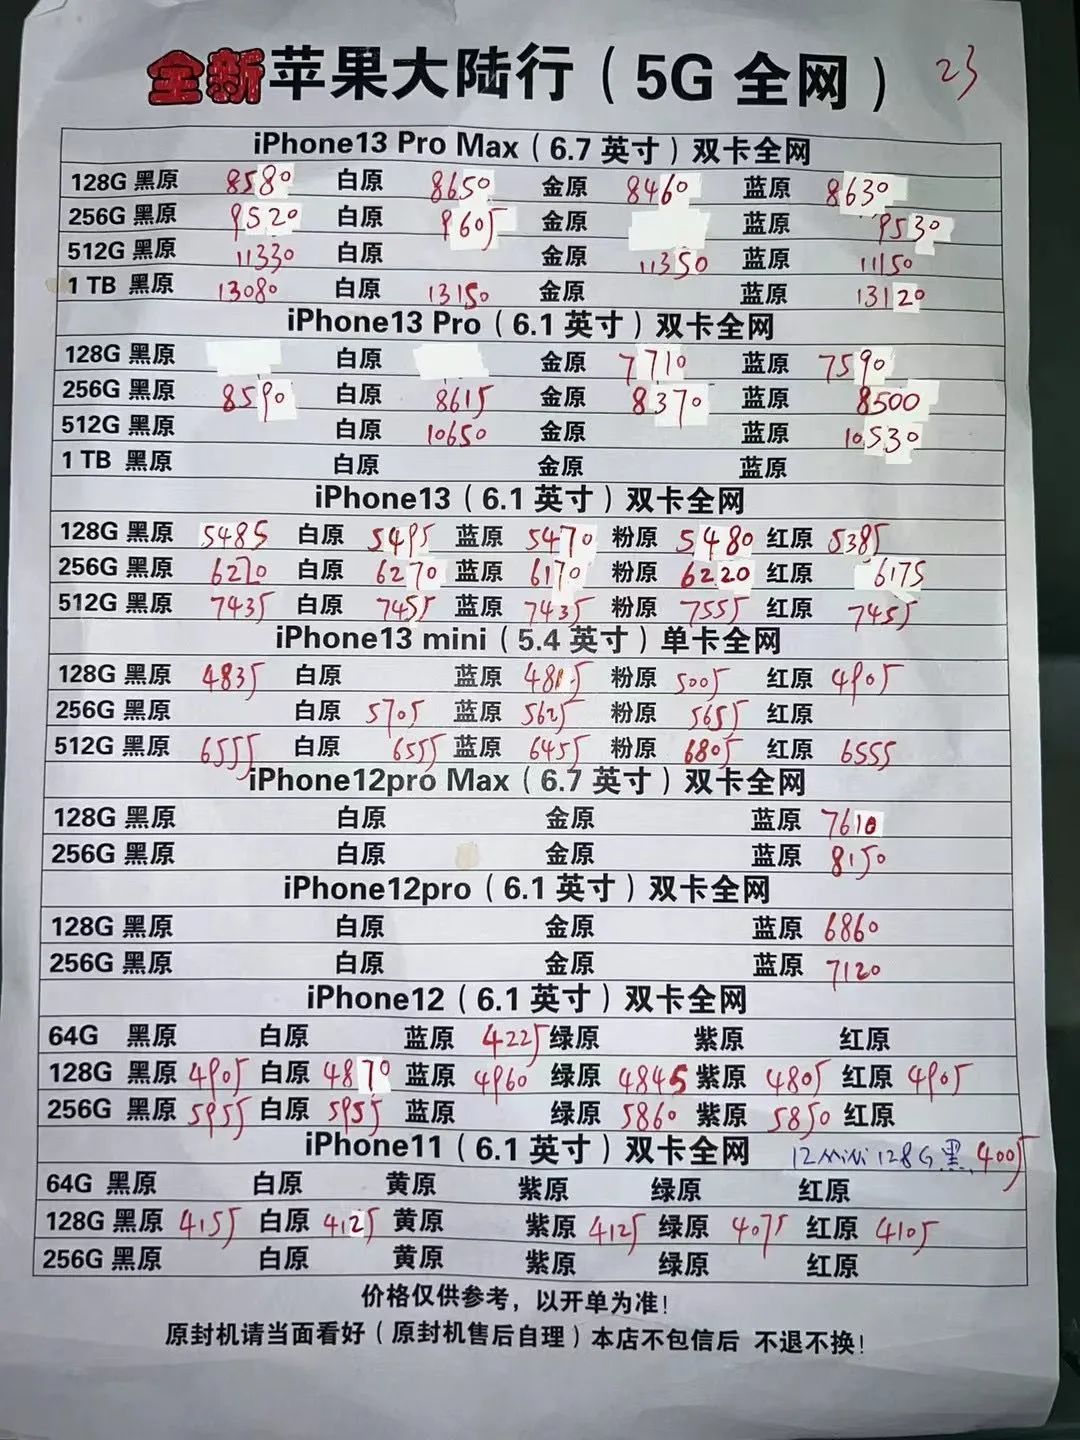 全新苹果大陆行（5G 全网） 23
iPhone13 Pro Max（6.7 英寸）双卡全网
128G 黑原 8580 白原 8650 金原 8460 蓝原 8630
256G 黑原 9520 白原 9605 金原 蓝原 9530
512G 黑原 11330 白原 金原 11350 蓝原 11150
1 TB 黑原 13080 白原 13150 金原 蓝原 13120
iPhone13 Pro（6.1 英寸）双卡全网
128G 黑原 白原 金原 7710 蓝原 7590
256G 黑原 8590 白原 8615 金原 8370 蓝原 8500
512G 黑原 白原 10650 金原 蓝原 10530
1 TB 黑原 白原 金原 蓝原
iPhone13（6.1 英寸）双卡全网
128G 黑原 5485 白原 5495 蓝原 5470 粉原 5480 红原 5385
256G 黑原 6270 白原 6270 蓝原 6170 粉原 6220 红原 6175
512G 黑原 7435 白原 7455 蓝原 7435 粉原 7555 红原 7455
iPhone13 mini（5.4 英寸）单卡全网
128G 黑原 4835 白原 蓝原 4815 粉原 5005 红原 4905
256G 黑原 白原 5705 蓝原 5625 粉原 5655 红原
512G 黑原 6555 白原 6555 蓝原 6455 粉原 6805 红原 6555
iPhone12pro Max（6.7 英寸）双卡全网
128G 黑原 白原 金原 蓝原 7610
256G 黑原 白原 金原 蓝原 8150
iPhone12pro（6.1 英寸）双卡全网
128G 黑原 白原 金原 蓝原 6860
256G 黑原 白原 金原 蓝原 7120
iPhone12（6.1 英寸）双卡全网
64G 黑原 白原 蓝原 4225 绿原 紫原 红原
128G 黑原 4905 白原 4870 蓝原 4960 绿原 4845 紫原 4805 红原 4905
256G 黑原 5955 白原 5955 蓝原 绿原 5860 紫原 5850 红原
iPhone11（6.1 英寸）双卡全网 12Mini 128G 黑 4005
64G 黑原 白原 黄原 紫原 绿原 红原
128G 黑原 4155 白原 4125 黄原 紫原 4125 绿原 4075 红原 4105
256G 黑原 白原 黄原 紫原 绿原 红原
价格仅供参考，以开单为准！
原封机请当面看好（原封机售后自理）本店不包信后 不退不换！